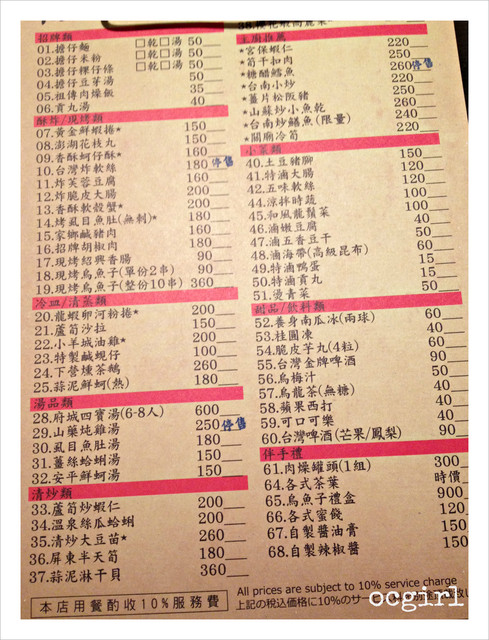 招牌類
01.擔仔麵 □乾□湯 50
02.擔仔米粉 □乾□湯 50
03.擔仔粿仔條 □乾□湯 50
04.擔仔豆芽湯 50
05.祖傳肉燥飯 35
06.貢丸湯 40
酥炸/現烤類
07.黃金鮮蝦捲* 150
08.澎湖花枝丸 150
09.香酥蚵仔酥* 160
10.台灣炸軟絲 180 停售
11.炸芙蓉豆腐 150
12.炸脆皮大腸 200
13.香酥軟殼蟹* 200
14.烤虱目魚肚(無刺)* 180
15.家鄉鹹豬肉 160
16.招牌胡椒肉 180
17.現烤紹興香腸 90
18.現烤烏魚子(單份2串) 90
19.現烤烏魚子(整份10串) 360
冷皿/清蒸類
20.龍蝦卵河粉捲* 200
21.蘆筍沙拉 150
22.小羊城油雞* 200
23.特製鹹蜆仔 100
24.下營燻茶鵝 260
25.蒜泥鮮蚵(熱) 180
湯品類
28.府城四寶湯(6-8人) 600
29.山藥炖雞湯 250 停售
30.虱目魚肚湯 180
31.薑絲蛤蜊湯 150
32.安平鮮蚵湯 150
清炒類
33.蘆筍炒蝦仁 200
34.溫泉絲瓜蛤蜊 200
35.清炒大豆苗* 260
36.屏東半天筍 180
37.蒜泥淋干貝 360
本店用餐酌收10%服務費
主廚推薦
*宮保蝦仁 220
*筍干扣肉 250
*糖醋鱈魚 260 停售
*台南小炒 220
*薑片松阪豬 250
*山蘇炒小魚乾 260
*台南炒鱔魚(限量) 240
*關廟冷筍 220
小菜類
40.土豆豬腳 150
41.特滷大腸 120
42.五味軟絲 120
44.涼拌時蔬 100
45.和風龍鬚菜 100
46.滷嫩豆腐 40
47.滷五香豆干 50
48.滷海帶(高級昆布) 60
49.特滷鴨蛋 15
50.特滷貢丸 15
51.燙青菜 50
甜品/飲料類
52.養身南瓜冰(兩球) 60
53.桂圓凍 40
54.脆皮芋丸(4粒) 60
55.台灣金牌啤酒 90
56.烏梅汁 50
57.烏龍茶(無糖) 40
58.蘋果西打 40
59.可口可樂 40
60.台灣啤酒(芒果/鳳梨) 90
伴手禮
61.肉燥罐頭(1組) 300
64.各式茶葉 時價
65.烏魚子禮盒 900
66.各式蜜餞 120
67.自製醬油膏 150
68.自製辣椒醬 150
All prices are subject to 10% service charge
上記の税込価格に10%のサー
ocgirl